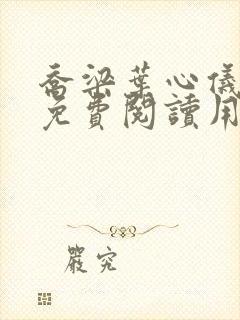 喬梁葉心儀
免費閱讀用
嚴究